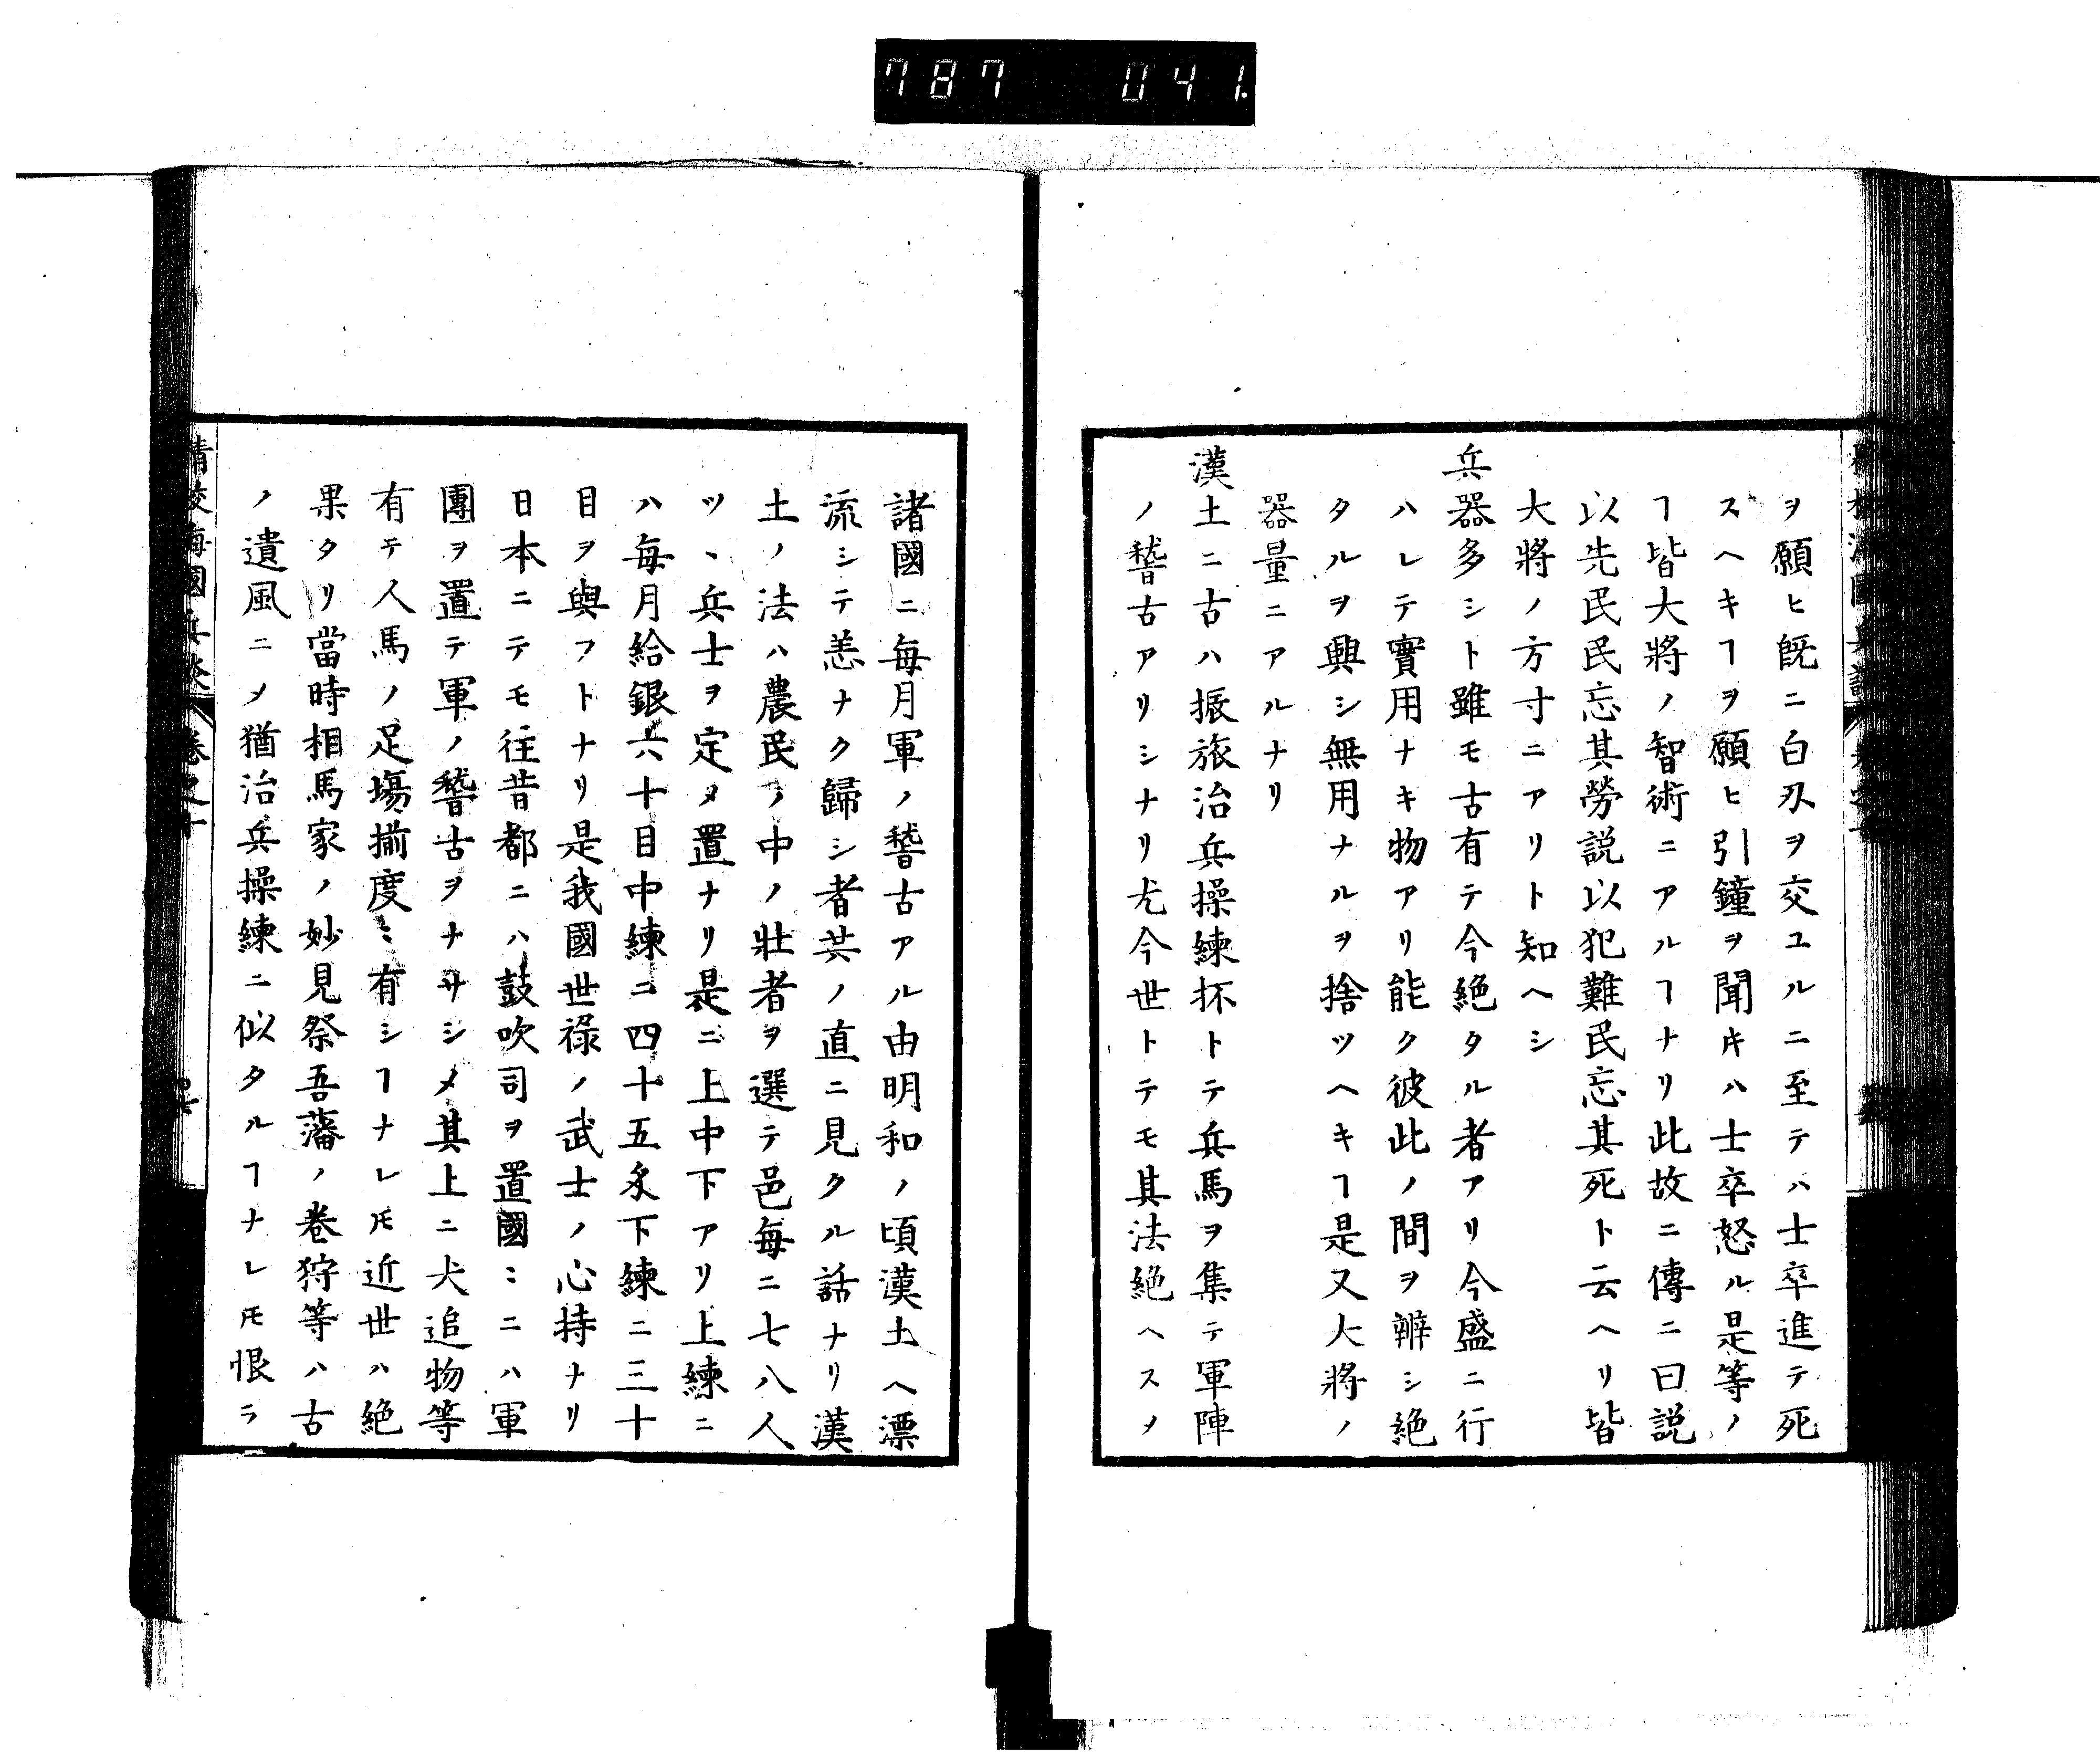 787 041
ヲ願ヒ既ニ白刄ヲ交ユルニ至テハ士卒進テ死
スヘキヿヲ願ヒ引鐘ヲ聞キハ士卒怒ル是等ノ
ヿ皆大將ノ智術ニアルヿナリ此故ニ傳ニ曰説
以先民民忘其勞説以犯難民忘其死ト云ヘリ皆
大將ノ方寸ニアリト知ヘシ
兵器多シト雖モ古有テ今絶タル者アリ今盛ニ行
ハレテ實用ナキ物アリ能ク彼此ノ間ヲ辨シ絶
タルヲ興シ無用ナルヲ捨ツヘキヿ是又大將ノ
器量ニアルナリ
漢土ニ古ハ振旅治兵操練抔トテ兵馬ヲ集テ軍陣
ノ稽古アリシナリ尤今世トテモ其法絶ヘスメ
諸國ニ毎月軍ノ稽古アル由明和ノ頃漢土ヘ漂
流シテ恙ナク歸シ者共ノ直ニ見タル話ナリ漢
土ノ法ハ農民ノ中ノ壯者ヲ選テ邑毎ニ七八人
ツヽ兵士ヲ定メ置ナリ是ニ上中下アリ上練ニ
ハ毎月給銀六十目中練ニ四十五匁下練ニ三十
目ヲ與フトナリ是我國世祿ノ武士ノ心持ナリ
日本ニテモ往昔都ニハ鼓吹司ヲ置國ニニハ軍
團ヲ置テ軍ノ稽古ヲナサシメ其上ニ犬追物等
有テ人馬ノ足場揃度ニ有シヿナレ𪜈近世ハ絶
果タリ當時相馬家ノ妙見祭吾藩ノ巻狩等ハ古
ノ遺風ニメ猶治兵操練ニ似タルヿナレ𪜈恨ラ
精校海國兵談 巻之十